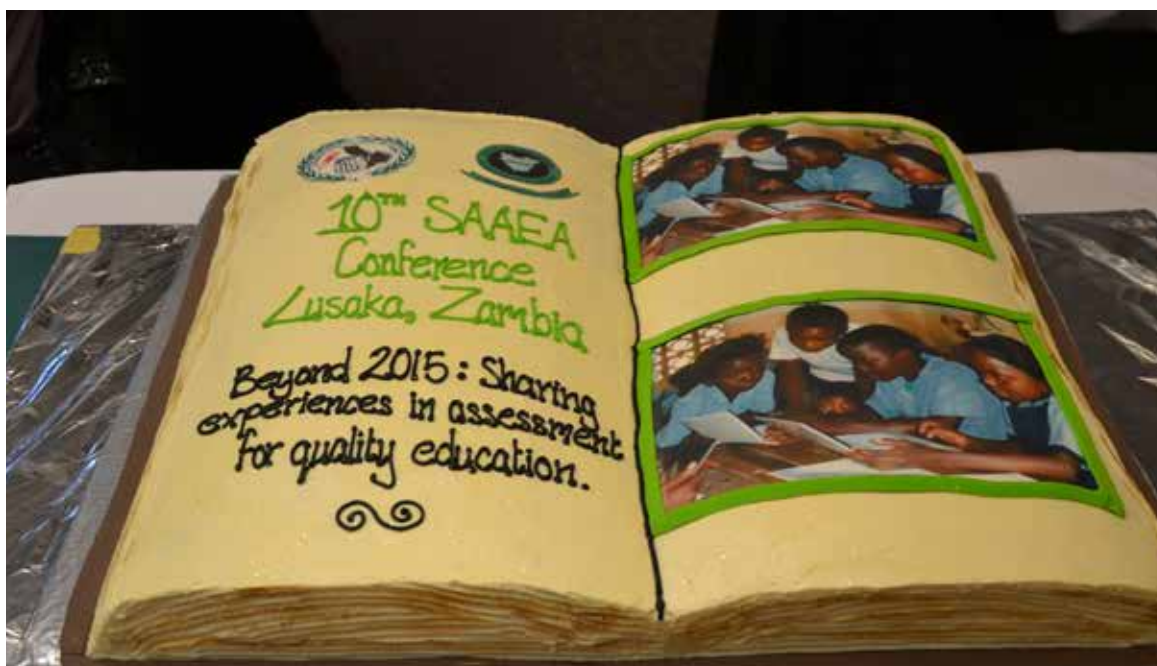 10TH SAAEA
Conference
Lusaka, Zambia
Beyond 2015: Sharing
experiences in assessment
for quality education.